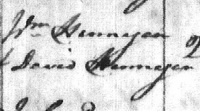 Wm Hennegan
David Hennegan 2